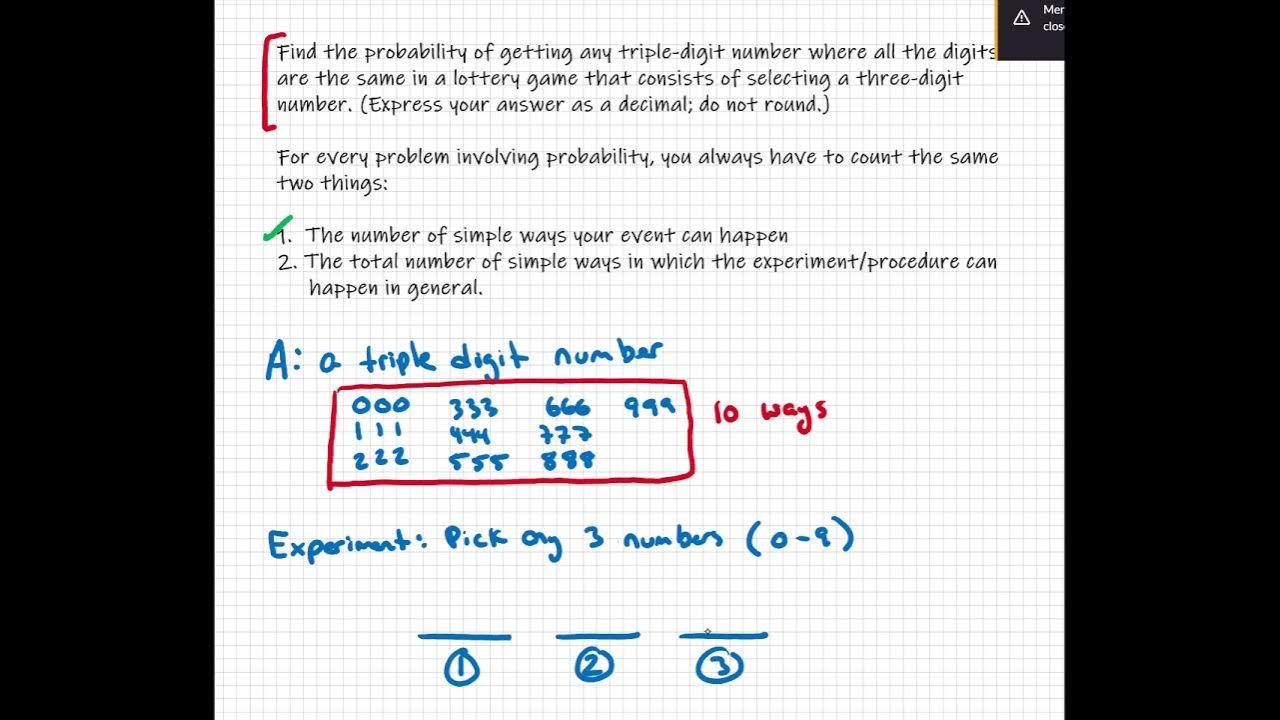 Mer
clos
Find the probability of getting any triple-digit number where all the digits
are the same in a lottery game that consists of selecting a three-digit
number. (Express your answer as a decimal; do not round.)
For every problem involving probability, you always have to count the same
two things:
1. The number of simple ways your event can happen
2. The total number of simple ways in which the experiment/procedure can
happen in general.
A: a triple digit number
000 333 666 999 10 ways
111 444 777
222 555 888
Experiment: Pick any 3 numbers (0-9)
1 2 3